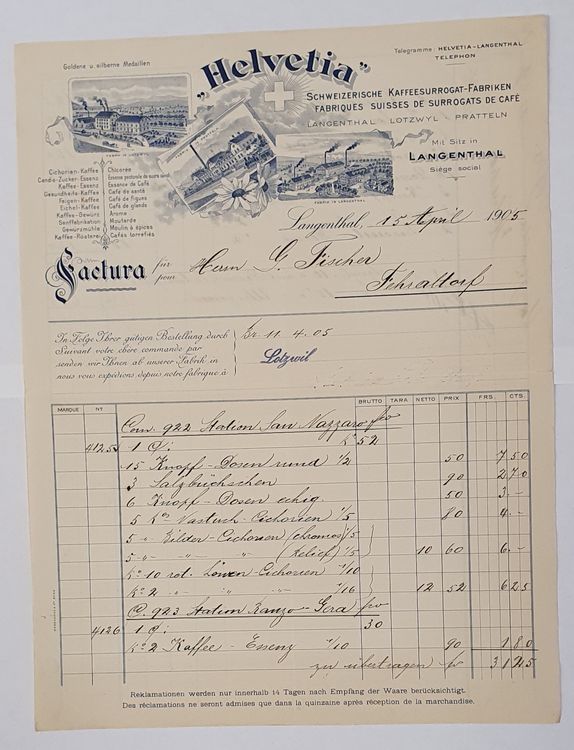 Goldene u. silberne Medaillen
„Helvetia"
Telegramme: HELVETIA-LANGENTHAL
TELEPHON
SCHWEIZERISCHE KAFFEESURROGAT-FABRIKEN
FABRIQUES SUISSES DE SURROGATS DE CAFÉ
LANGENTHAL LOTZWYL PRATTELN
Mit Sitz in
LANGENTHAL
Siège social
Cichorien-Kaffee Chicorée
Candis-Zucker-Essenz
Kaffee-Essenz Essence de Café
Gesundheits-Kaffee Café de santé
Feigen-Kaffee Café de figues
Eichel-Kaffee Café de glands
Kaffee-Gewürz Arome
Senffabrikation Moutarde
Gewürzmühle Moulin à épices
Kaffee-Rösterei Cafés torréfiés
Langenthal, 15 April 1905
Factura für pour Herrn G. Fischer
Fehraltorf
In Folge Ihrer gütigen Bestellung durch
Suivant votre chère commande par
senden wir Ihnen ab unserer Fabrik in
nous vous expédions depuis notre fabrique à
11.4.05
Lotzwil
MARQUE No BRUTTO TARA NETTO PRIX FRS. CTS.
Com. 922 Station San Nazzaro fro
1 52
15 Knopf-Dosen rund 1/2 50 7 50
3 Salzbüchschen 90 2 70
6 Knopf-Dosen eckig 50 3 -
5 Cichorien 1/5 80 4 -
5 Bilder-Cichorien (Chromos) 1/5
5 " " " (Relief) 1/5 10 60 6 -
10 rot. Löwen-Cichorien 1/10
2 " " " 1/16 12 52 6 25
C. 923 Station Ranzo-Gera fro
4126 1 30
2 Kaffee-Essenz 1/10 90 1 80
zu übertragen fr 31 25
Reklamationen werden nur innerhalb 14 Tagen nach Empfang der Waare berücksichtigt.
Des réclamations ne seront admises que dans la quinzaine après réception de la marchandise.